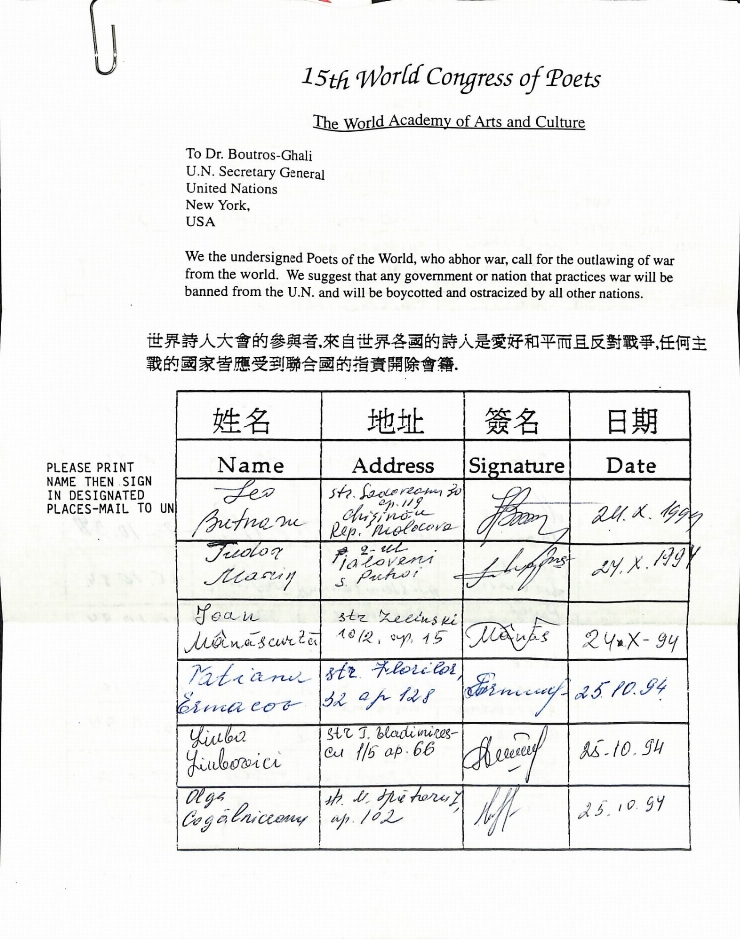 15th World Congress of Poets
The World Academy of Arts and Culture
To Dr. Boutros-Ghali
U.N. Secretary General
United Nations
New York,
USA
We the undersigned Poets of the World, who abhor war, call for the outlawing of war
from the world. We suggest that any government or nation that practices war will be
banned from the U.N. and will be boycotted and ostracized by all other nations.
世界詩人大會的參與者.來自世界各國的詩人是愛好和平而且反對戰爭,任何主
戰的國家皆應受到聯合國的指責開除會籍.
姓名 地址 簽名 日期
PLEASE PRINT
NAME THEN SIGN
IN DESIGNATED
PLACES-MAIL TO UN
Name Address Signature Date
Leo
Butnaru
str. Sadoveanu 30
ap. 119
Chișinău
Rep. Moldova
24.X.1994
Tudor
Marin
Ialoveni
s. Puhoi
24.X.1994
Ioan
Mânăscurtă
str Zelinski
10/2, ap. 15
Mânăs
24.X-94
Tatiana
Ermacov
str. Florilor,
32 ap 128
25.10.94
Liuba
Liubovici
str T. Vladimires-
cu 1/5 ap. 66
25-10.94
Olga
Cogâlniceanu
ap. 102
25.10.94